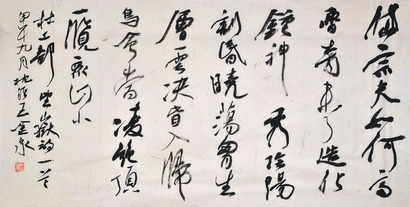 岱宗夫如何齊
魯青未了造化
鍾神秀陰陽
割昏曉蕩胸生
層雲決眥入歸
鳥會當凌絕頂
一覽衆山小
杜工部望嶽詩一首
甲午九月 王金泉